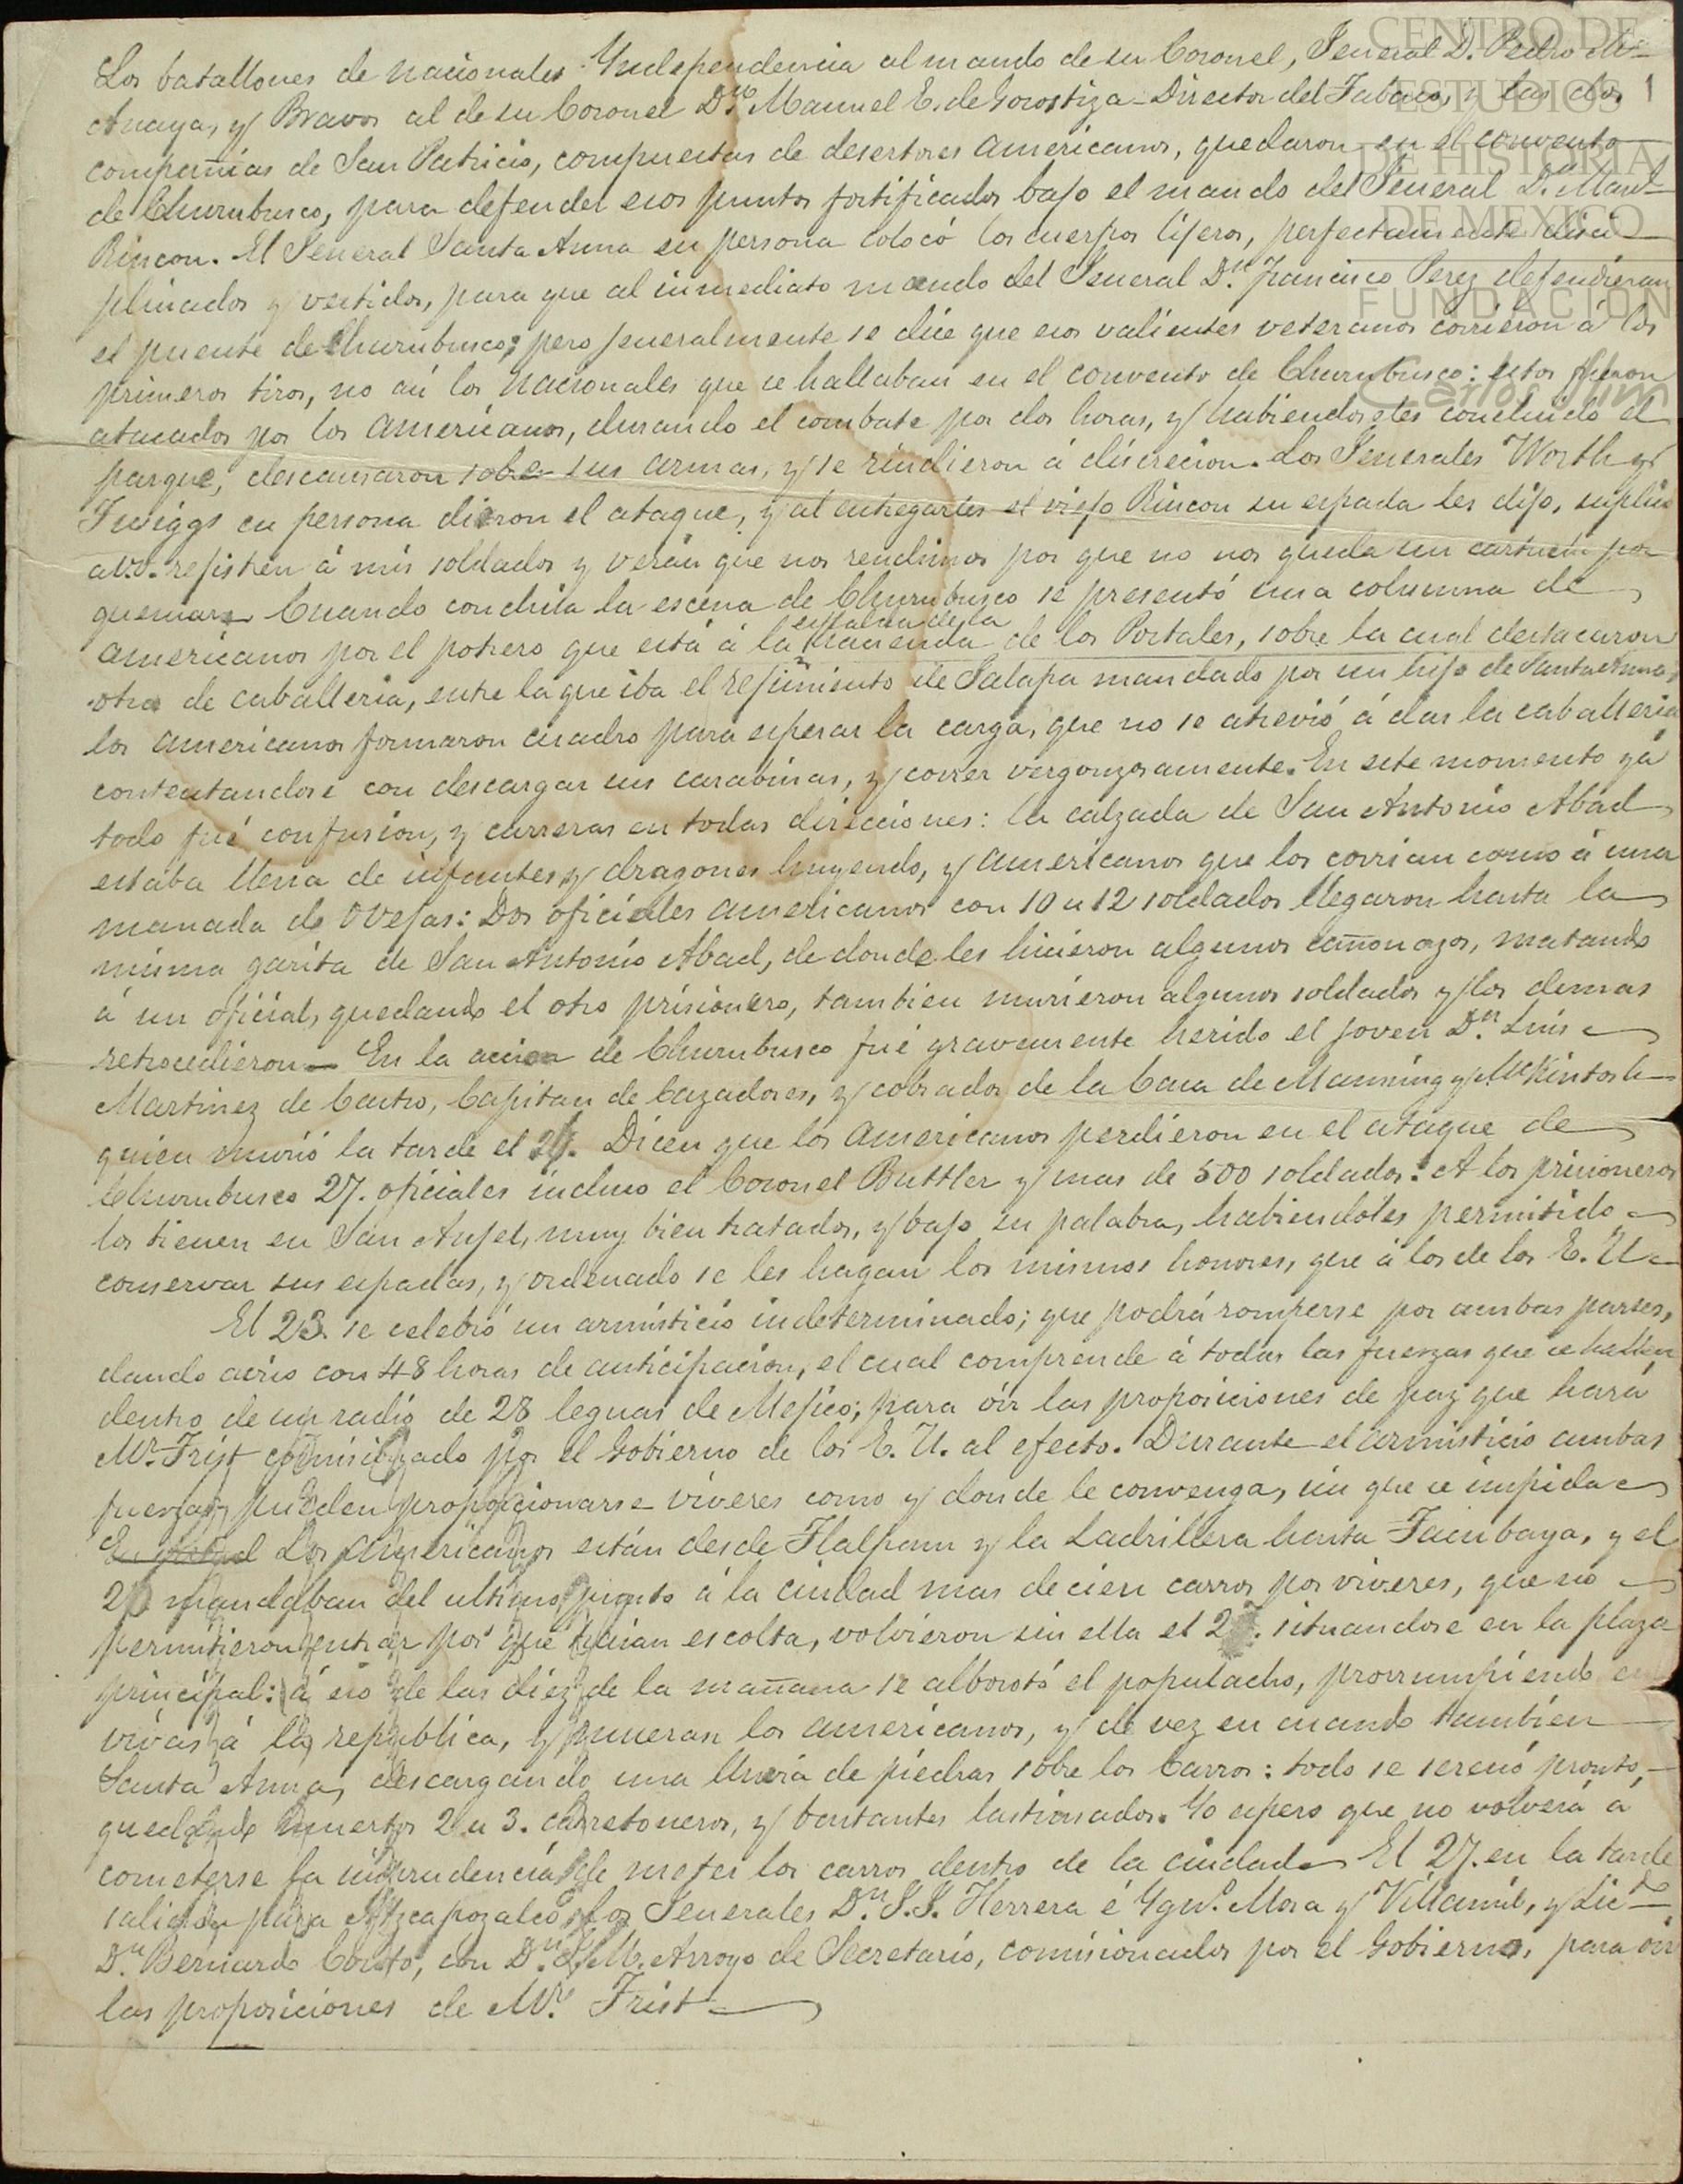 Los batallones de nacionales Yndependencia al mando de su Coronel, General D. Pedro Ma
Anaya, y Bravos al de su Coronel Dn. Manuel E. de Gorostiza - Director del Tabaco, y las dos
compañias de San Patricio, compuestas de desertores americanos, quedaron en el convento
de Churubusco, para defender esos puntos fortificados bajo el mando del General Dn. Manl.
Rincon. El General Santa Anna en persona colocó los cuerpos lijeros, perfectamente disci-
plinados y vestidos, para que al inmediato mando del General Dn. Francisco Perez defendieran
el puente de Churubusco; pero jeneralmente se dice que esos valientes veteranos corrieron á los
primeros tiros, no asi los nacionales que se hallaban en el convento de Churubusco: estos fueron
atacados por los americanos, durando el combate por dos horas, y habiendoseles concluido el
parque, descansaron sobre sus armas, y se rindieron á discrecion. Los Generales Worth y
Twiggs en persona dieron el ataque, y al entregarles el viejo Rincon su espada les dijo, suplico
a V.V. rejistren á mis soldados y verán que nos rendimos por que no nos queda un cartucho por
quemar. Cuando concluia la escena de Churubusco se presentó una columna de
americanos por el potrero que está á la espalda de la hacienda de los Portales, sobre la cual destacaron
otra de caballeria, entre la que iba el rejimiento de Jalapa mandado por un hijo de Santa Anna,
los americanos formaron cuadro para esperar la carga, que no se atrevió á dar la caballeria
contentandose con descargar sus carabinas, y correr vergonzosamente. En este momento yá
todo fué confusion, y carreras en todas direcciones: la calzada de San Antonio Abad
estaba llena de infantes y dragones huyendo, y americanos que los corrian como á una
manada de ovejas: Dos oficiales americanos con 10 u 12 soldados llegaron hasta la
misma garita de San Antonio Abad, de donde les hicieron algunos cañonazos, matando
á un oficial, quedando el otro prisionero, tambien murieron algunos soldados y los demas
retrocedieron. En la accion de Churubusco fué gravemente herido el joven Dn. Luis
Martinez de Castro, Capitan de Cazadores, y cobrador de la Casa de Manning y McKintosh
quien murió la tarde el Dicen que los americanos perdieron en el ataque de
Churubusco 27. oficiales incluso el Coronel Buttler y mas de 500 soldados. A los prisioneros
los tienen en San Anjel, muy bien tratados, y bajo su palabra, habiendoles permitido
conservar sus espadas, y ordenado se les hagan los mismos honores, que á los de los E. U.
El 23. se celebró un armisticio indeterminado; que podrá romperse por ambas partes,
dando aviso con 48 horas de anticipacion, el cual comprende á todas las fuerzas que se hallen
dentro de un radio de 28 leguas de Mejico; para oir las proposiciones de paz que hará
Mr. Trist comisionado por el Gobierno de los E. U. al efecto. Durante el armisticio ambas
fuerzas pueden proporcionarse viveres como y donde le convenga, sin que se impida
Los americanos están desde Tlalpam y la Ladrillera hasta Tacubaya, y el
mandaban del ultimo punto á la ciudad mas de cien carros por viveres, que no
permitieron entrar por que traian escolta, volvieron sin ella el situandose en la plaza
principal: á eso de las diez de la mañana se alborotó el populacho, prorrumpiendo en
vivas á la republica, y mueran los americanos, y de vez en cuando tambien
Santa Anna, descargando una lluvia de piedras sobre los Carros: todo se serenó pronto,
quedando muertos 2 u 3. carretoneros, y bastantes lastimados. Yo espero que no volverá á
cometerse la imprudencia de meter los carros dentro de la ciudad. El 27. en la tarde
salieron para Atzcapozalco los Generales Dn. J. J. Herrera é Ygno. Mora y Villamil, y Licdo.
Dn. Bernardo Couto, con Dn. M. Arroyo de Secretario, comisionados por el Gobierno, para oir
las proposiciones de Mr. Trist
1
CENTRO DE
ESTUDIOS
DE HISTORIA
DE MEXICO
FUNDACIÓN
Carlos Slim